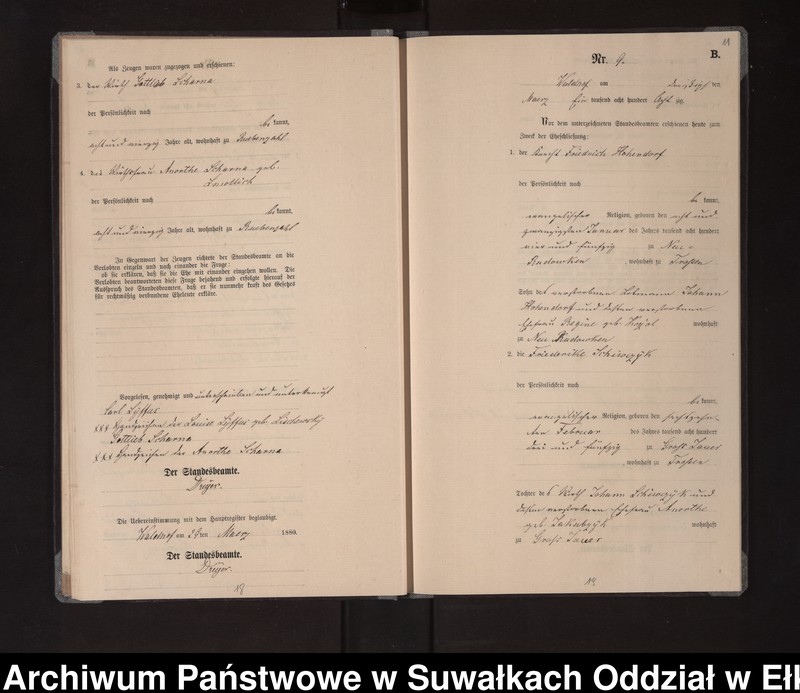 Als Zeugen waren zugezogen und erschienen:
3. der Wirth Gottlieb Scharna
der Persönlichkeit nach
be kannt,
acht und vierzig Jahre alt, wohnhaft zu Ruebenzahl
4. des Wirthsfrau Anorthe Scharna geb.
der Persönlichkeit nach
be kannt,
acht und vierzig Jahre alt, wohnhaft zu Ruebenzahl
In Gegenwart der Zeugen richtete der Standesbeamte an die
Verlobten einzeln und nach einander die Frage:
ob sie erklären, daß sie die Ehe mit einander eingehen wollen. Die
Verlobten beantworteten diese Frage bejahend und erfolgte hierauf der
Ausspruch des Standesbeamten, daß er sie nunmehr kraft des Gesetzes
für rechtmäßig verbundene Eheleute erkläre.
Vorgelesen, genehmigt und unterschrieben und unterkreuzt
Carl Lyssus
xxx Handzeichen der Louise Lyssus geb.
Gottlieb Scharna
xxx Handzeichen der Anorthe Scharna
Der Standesbeamte.
Dreyer.
Die Uebereinstimmung mit dem Hauptregister beglaubigt.
am 29ten Maerz 1880.
Der Standesbeamte.
Dreyer.
18
11
B.
Nr. 9.
am
ten
Maerz Ein tausend acht hundert Acht zig
Vor dem unterzeichneten Standesbeamten erschienen heute zum
Zweck der Eheschließung:
1. der Knecht Friedrich Hohendorf
der Persönlichkeit nach
be kannt,
evangelischer Religion, geboren den acht und
zwanzigsten Januar des Jahres tausend acht hundert
vier und fünfzig zu Neu-
Rudowken, wohnhaft zu Trossen
Sohn des verstorbenen Losmann Johann
Hohendorf und dessen verstorbenen
Ehefrau Regine geb. wohnhaft
zu Neu Rudowken
2. die Friederike
der Persönlichkeit nach
be kannt,
evangelischer Religion, geboren den sechszehn-
ten Februar des Jahres tausend acht hundert
drei und fünfzig zu Groß Jauer
, wohnhaft zu Trossen
Tochter des Wirth Johann und
dessen verstorbenen Ehefrau Anorthe
geb. Jakubzyk wohnhaft
zu Groß Jauer
19
Archiwum Państwowe w Suwałkach Oddział w Ełk